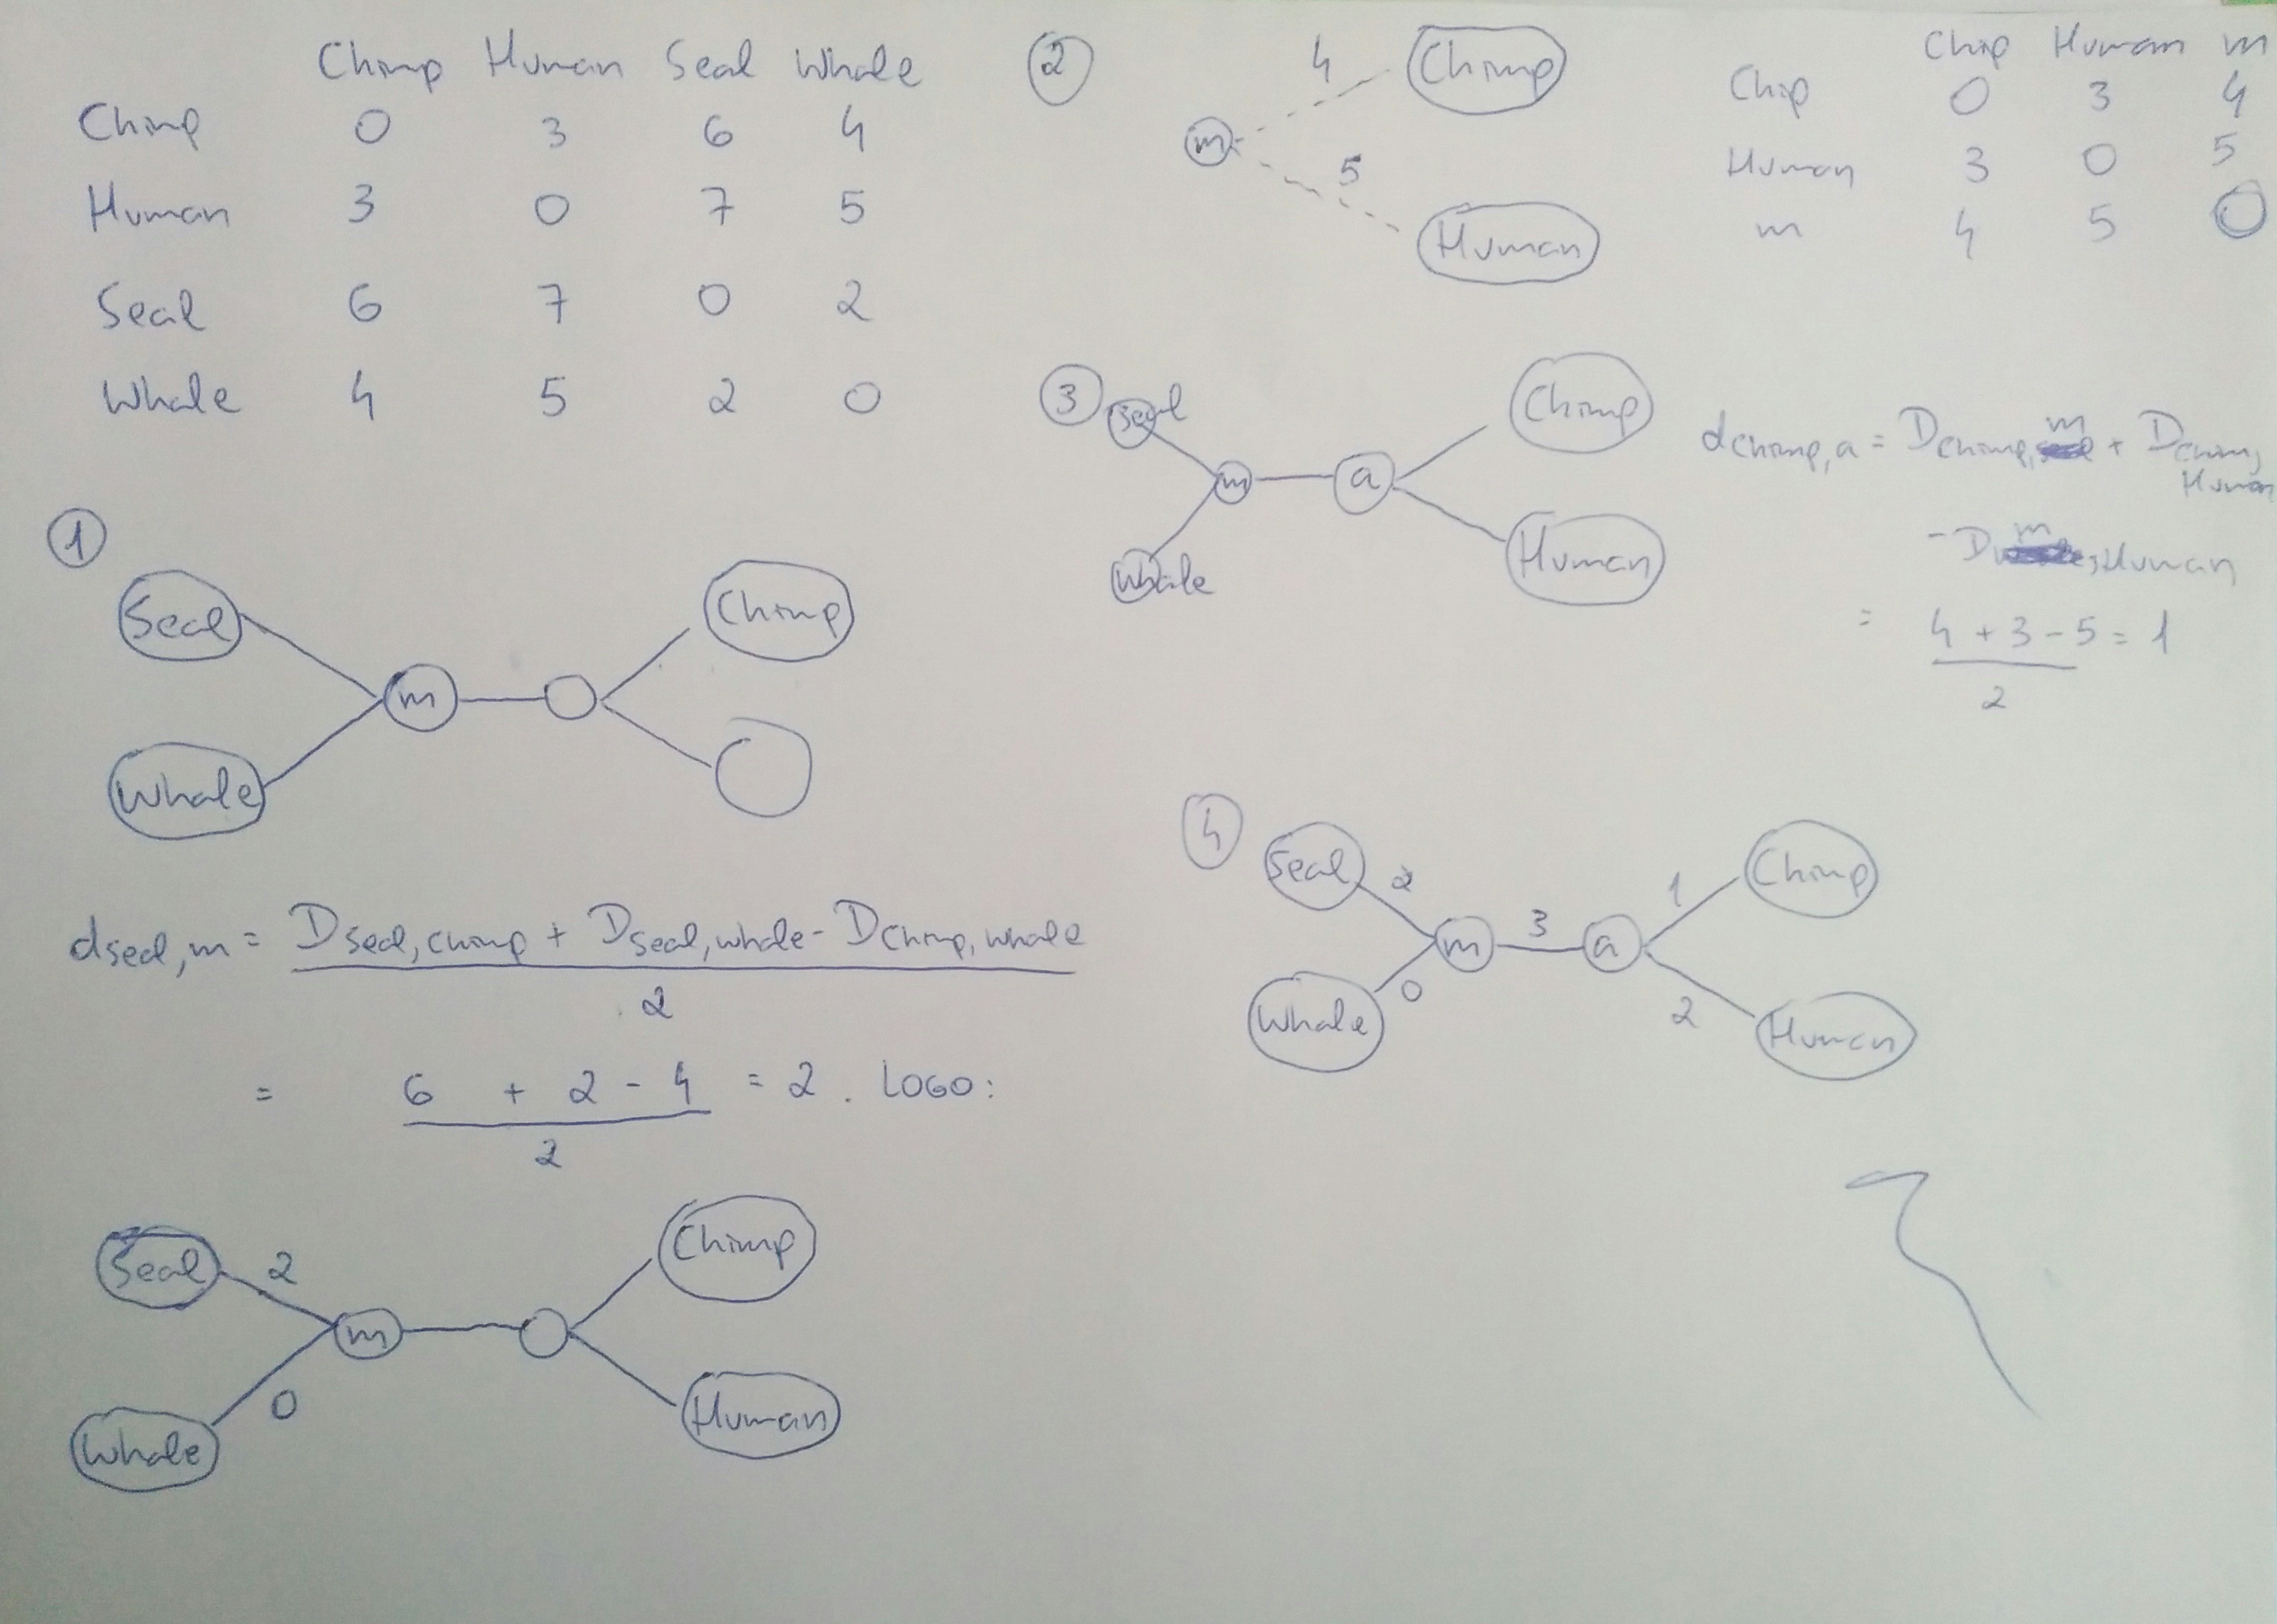 Chimp Human Seal Whale
Chimp 0 3 6 4
Human 3 0 7 5
Seal 6 7 0 2
Whale 4 5 2 0
1
Seal
Chimp
m
Whale
dseal,m = Dseal,chimp + Dseal,whale - Dchimp,whale
2
= 6 + 2 - 4 = 2. LOGO:
2
Seal 2
Chimp
m
0
Whale
Human
2
4 Chimp
m
5
Human
Chip Human m
Chip 0 3 4
Human 3 0 5
m 4 5 0
3
Seal
Chimp
m a
Whale
Human
dchimp,a = Dchimp,m + Dchimp,
Human
- Dm,Human
= 4 + 3 - 5 = 1
2
4
Seal 2 1 Chimp
m 3 a
Whale 0 2 Human